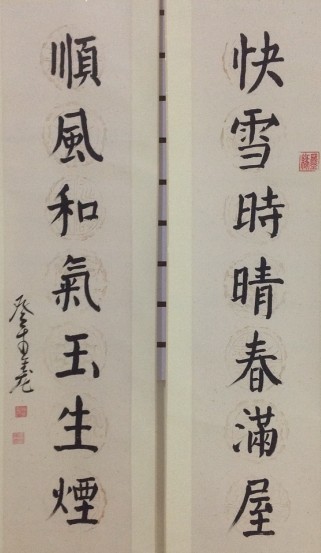 快雪時晴春滿屋
順風和氣玉生煙